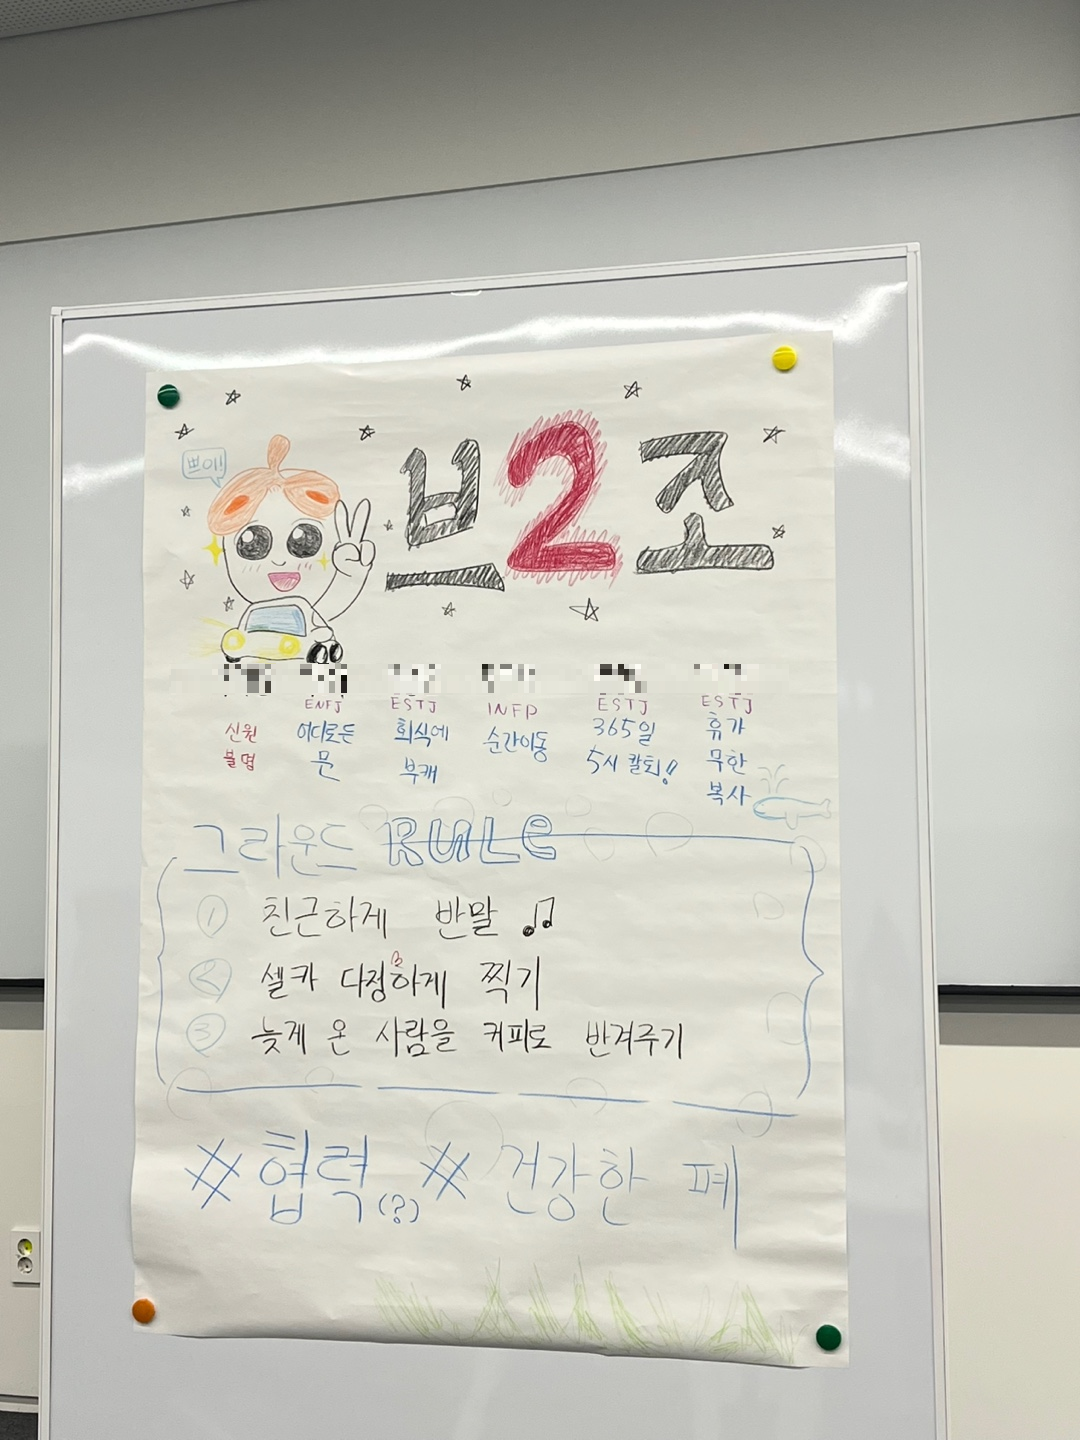 쁘이!
브2조
ENFJ ESTJ INFP ESTJ ESTJ
신원 어디로든 회식에 순간이동 365일 휴가
불명 문 부캐 5시 칼퇴!! 무한
복사
그라운드 RULE
① 친근하게 반말 ♫
② 셀카 다정하게 찍기
③ 늦게 온 사람을 커피로 반겨주기
#협력(?) #건강한 폐